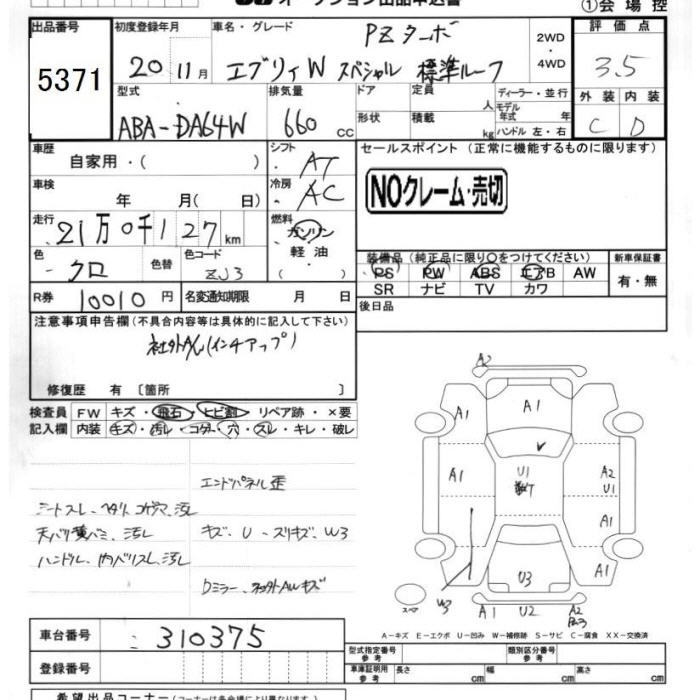 オークション出品申込書
①会場控
出品番号 5371
初度登録年月 20 11月
車名・グレード PZターボ
エブリィW スペシャル 標準ルーフ
2WD
・
4WD
評価点 3.5
外装 内装
C D
型式 ABA-DA64W
排気量 660 cc
ドア
形状
定員 人
積載 kg
ディーラー・並行
モデル年式 年
ハンドル 左・右
車歴 自家用・( )
シフト AT
車検 年 月( 日)
冷房 AC
走行 21万0千127km
燃料 ガソリン
軽油
( )
色 クロ
色替
色コード ZJ3
R券 10010円
名変通知期限 月 日
セールスポイント(正常に機能するものに限ります)
NOクレーム・売切
装備品(純正品に限り○をつけてください)
PS PW ABS エアB AW
SR ナビ TV カワ
新車保証書
有・無
後日品
注意事項申告欄(不具合内容等は具体的に記入して下さい)
社外A/W(インチアップ)
修復歴 有〔箇所 〕
検査員 FW キズ・飛石・ヒビ割・リペア跡・×要
記入欄 内装 キズ・汚レ・コゲ・穴・スレ・キレ・破レ
エンドパネル歪
シートスレ、ヘタリ、コゲ穴、汚レ
天バリ黄バミ、汚レ
キズ、U、スリキズ、W3
ハンドル、内バリスレ、汚レ
Dミラー、社外AWキズ
A2
A1
A1
A1
U1
A2
U1
A1
A1
U3
W3
スペア
A1 U2 A2
A-キズ E-エクボ U-凹み W-補修跡 S-サビ C-腐食 XX-交換済
車台番号 310375
登録番号
型式指定番号
参考
類別区分番号
参考
車庫証明用
参考
長さ cm 幅 cm 高さ cm
希望出品コーナー